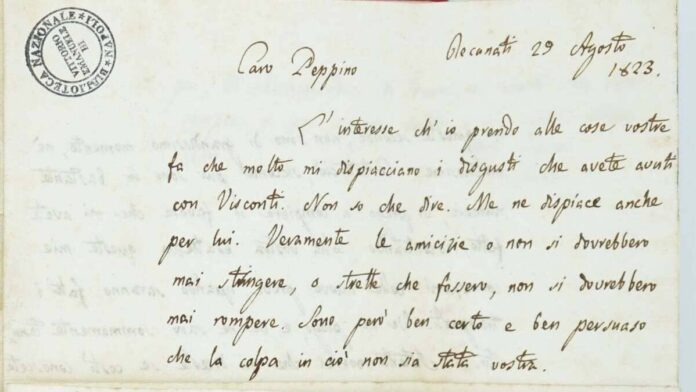 BIBLIOTECA NAZIONALE ★ NAPOLI ★
VITTORIO
EMANUELE
III
Recanati 29 Agosto
1823.
Caro Peppino
L'interesse ch'io prendo alle cose vostre
fa che molto mi dispiacciano i disgusti che avete avuti
con Visconti. Non so che dire. Me ne dispiace anche
per lui. Veramente le amicizie o non si dovrebbero
mai stringere, o strette che fossero, non si dovrebbero
mai rompere. Sono però ben certo e ben persuaso
che la colpa in ciò non sia stata vostra.